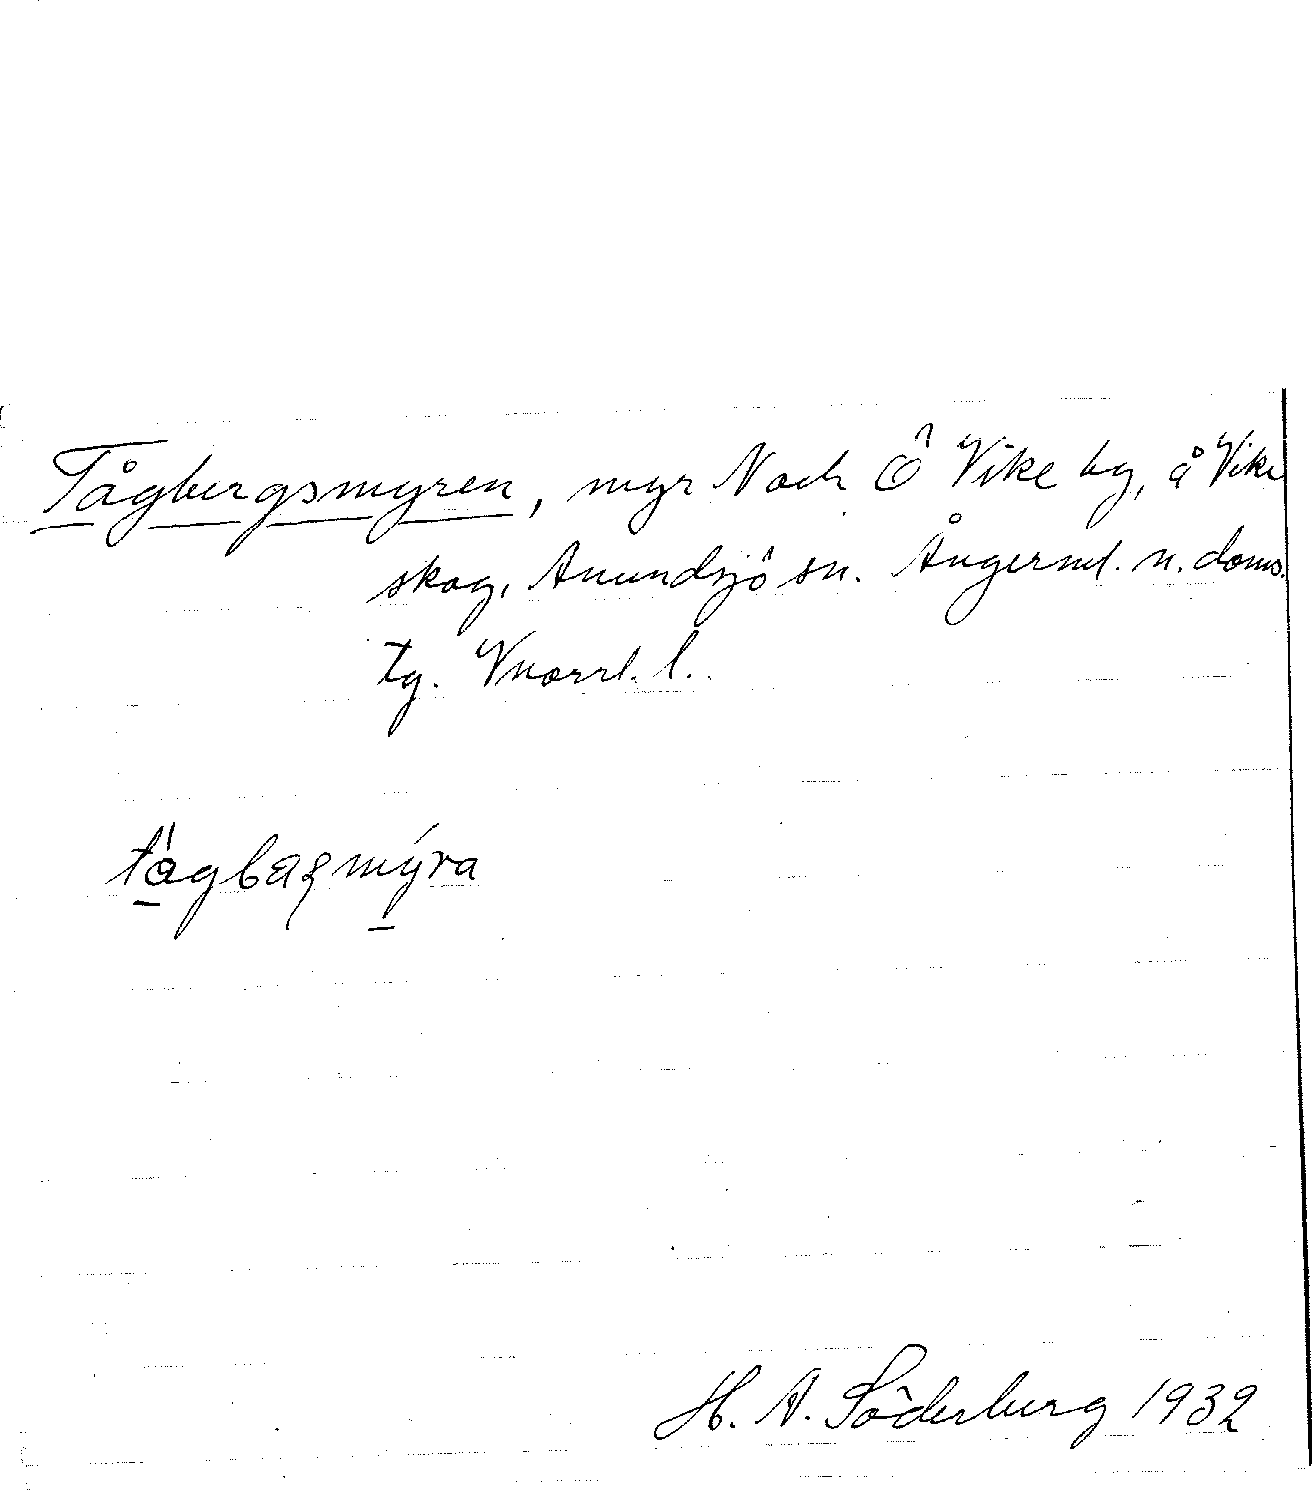 Tågbergsmyren, myr N och Ö Vike by, å Vike
skog, Anundsjö sn. Ångerml. n. doms.
tg. Vnorrl. l.
H. A. Söderberg 1932